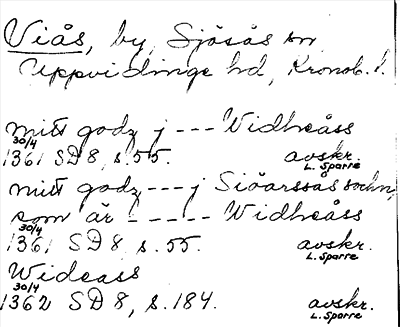 Viås, by, Sjösås sn
Uppvidinge hd, Kronob. l.
mitt godz j --- Widheåss
30/4
1361 SD 8, s. 55. avskr.
L. Sparre
mitt godz --- j Siöarssås sochn,
som är ----- Widheåss
30/4
1361 SD 8 s. 55. avskr.
L. Sparre
Wideass
30/4
1362 SD 8, s. 184. avskr.
L. Sparre